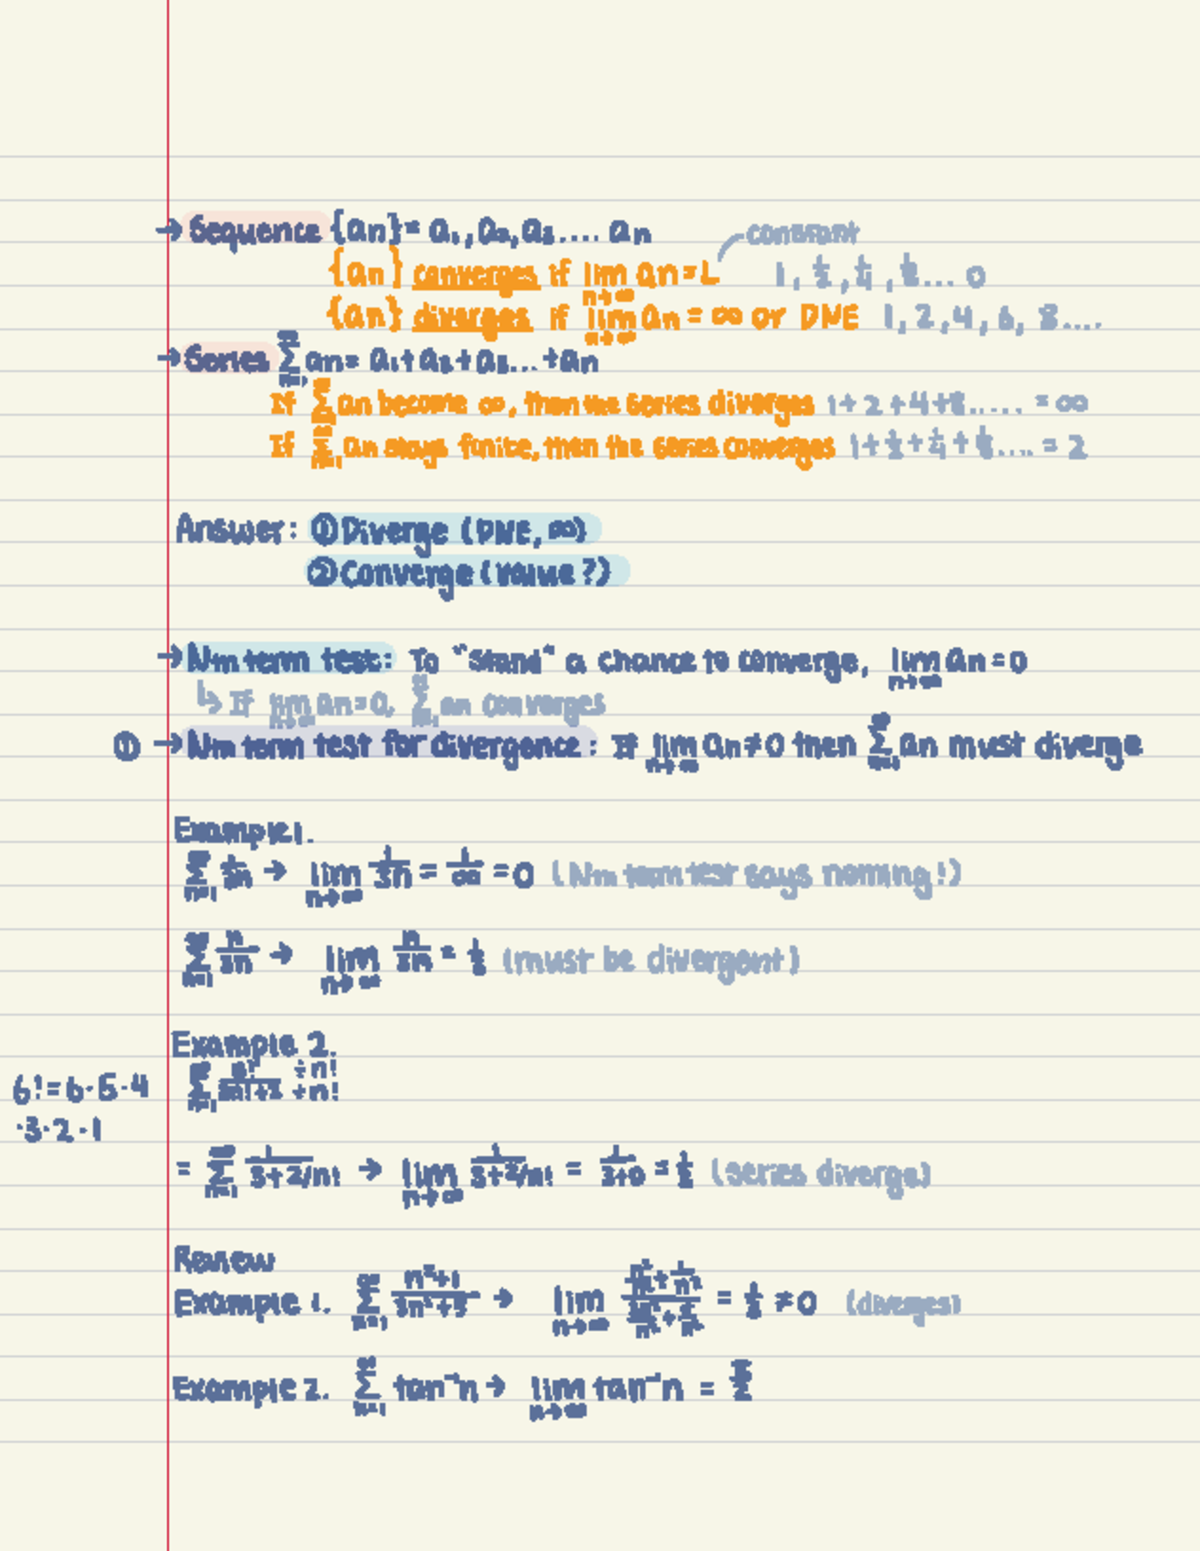 → Sequence {an} = a₁, a₂, a₃.... an
constant
{an} converges if lim n→∞ an = L 1, 1/2, 1/4, 1/8... 0
{an} diverges if lim n→∞ an = ∞ or DNE 1, 2, 4, 6, 8....
→ Series ∞ Σ n=1 an = a₁+a₂+a₃...+an
If ∞ Σ an become ∞, then the series diverges 1+2+4+8..... = ∞
If ∞ Σ n=1 an stays finite, then the series converges 1+1/2+1/4+1/8.... = 2
Answer: ① Diverge (DNE, ∞)
② Converge (value?)
→ Nth term test: To "stand" a chance to converge, lim n→∞ an = 0
↳ If lim n→∞ an=0, ∞ Σ n=1 an converges
① → Nth term test for divergence: If lim n→∞ an ≠ 0 then ∞ Σ n=1 an must diverge
Example 1.
∞ Σ n=1 1/3n → lim n→∞ 1/3n = 1/∞ = 0 (Nth term test says nothing!)
∞ Σ n=1 n/3n → lim n→∞ n/3n = 1/3 (must be divergent)
Example 2.
6! = 6·5·4
·3·2·1
∞ Σ n=1 n!/3n!+2 ÷n! ÷n!
= ∞ Σ n=1 1/3+2/n! → lim n→∞ 1/3+2/n! = 1/3+0 = 1/3 (series diverge)
Review
Example 1. ∞ Σ n=1 n²+1/3n²+5 → lim n→∞ = 1/3 ≠ 0 (diverges)
Example 2. ∞ Σ n=1 tan⁻¹n → lim n→∞ tan⁻¹n = π/2